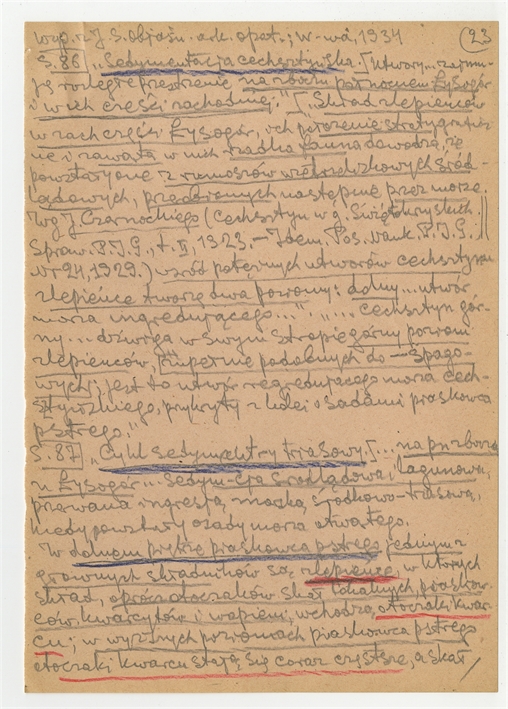 wyp. z J. S. objaśn. ark. opat.; W-wa, 1934
23
S. 86 "Sedymentacja cechsztyńska. [Utwory... zajmu-
ją rozległe przestrzenie na zboczu północnem Łysogór
i w ich części zachodniej." [ "Skład zlepieńców
w zach części Łysogór, ich położenie stratygraficz
ne i zawarta w nich rzadka fauna dowodzą, że
powstały one z rumoszów większych śród-
lądowych, przerobionych następnie przez morze.
Wg J. Czarnockiego (Cechsztyn w g. Świętokrzyskich.
Spraw. P.I.G., t. II, 1923. – Idem. Pos. nauk. P.I.G.
Nr 24, 1929.) wśród potężnych utworów cechsztynu
zlepieńce tworzą dwa poziomy: dolny... utwór
morza ingredującego..." "... cechsztyn gór-
ny... dźwiga w swym stropie górny poziom
zlepieńców, zupełnie podobnych do — spągo-
wych; jest to utwór regredującego morza cech-
sztyńskiego, przykryty z kolei osadami piaskowca
pstrego."
S. 87 "Cykl sedymentacyjny triasowy. [... na pn zboczu
Łysogór... śródlądowa, lagunowa,
przerwana ingresją morską środkowo-triasową,
kiedy powstały osady morza otwartego.
W dolnem piętrze piaskowca pstrego jednym z
głównych składników są zlepieńce, w których
skład, oprócz otoczaków skał lokalnych, piaskow-
ców kwarcytów i wapieni, wchodzą otoczaki kwar-
cu; w wyższych poziomach piaskowca pstrego
otoczaki kwarcu stają się coraz częstsze, a skał